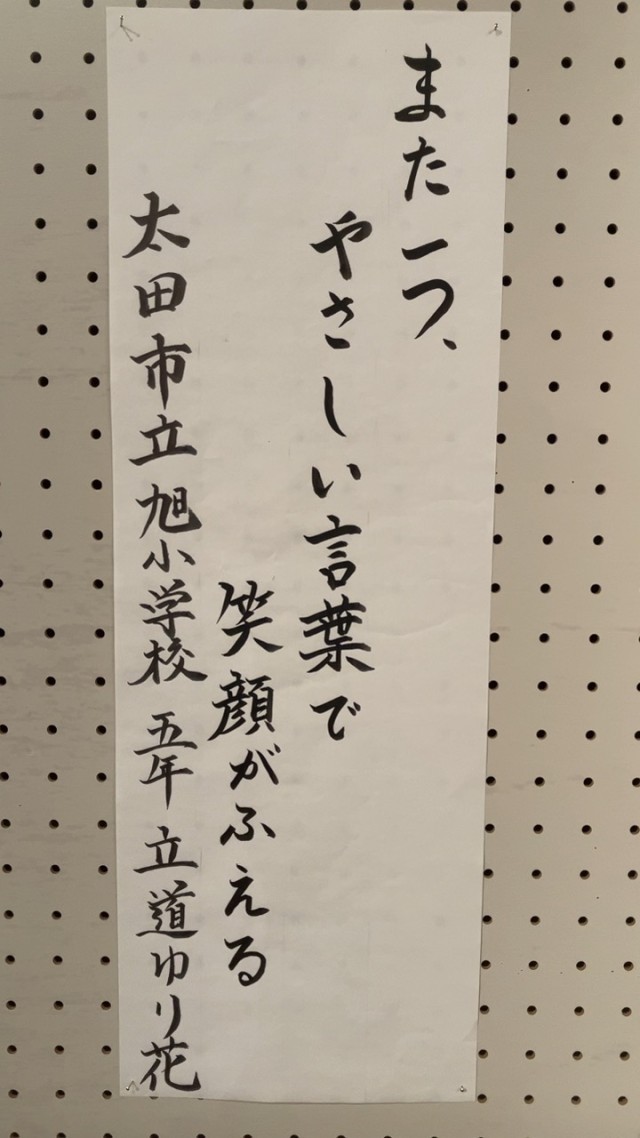 また一つ、
やさしい言葉で
笑顔がふえる
太田市立旭小学校 五年 立道ゆり花